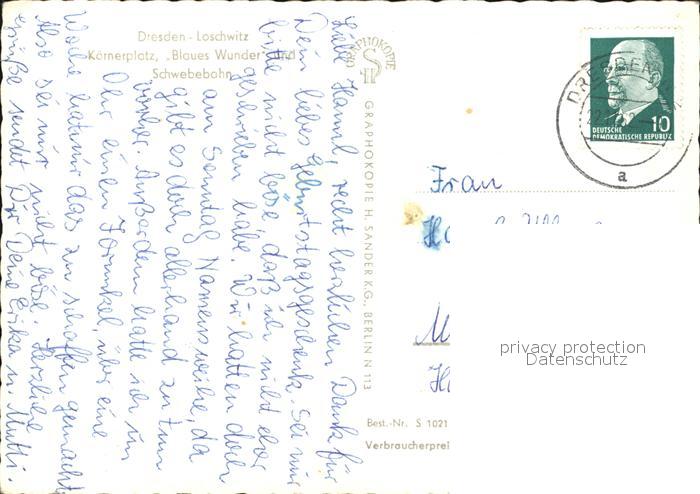 Dresden - Loschwitz
Körnerplatz, „Blaues Wunder" und
Schwebebahn
Liebe Hannl, recht herzlichen Dank für
Dein liebes Geburtstagsgeschenk. Sei mir
bitte nicht böse daß ich nicht eher
geschrieben habe. Wir hatten doch
am Sonntag Namensweihe, da
gibt es doch allerhand zu tun
vorher. Außerdem hatte ich im
Ohr einen Forunkel, über eine
Woche hat mir das zu schaffen gemacht
Also sei mir nicht böse. Herzliche
Grüße sendet Dir Deine Erika u. Mutti
GRAPHOKOPIE
GRAPHOKOPIE H. SANDER K.G., BERLIN N 113
DEUTSCHE
DEMOKRATISCHE REPUBLIK
10
DRESDEN
a
Frau
privacy protection
Datenschutz
Best.-Nr. S 1021
Verbraucherprei